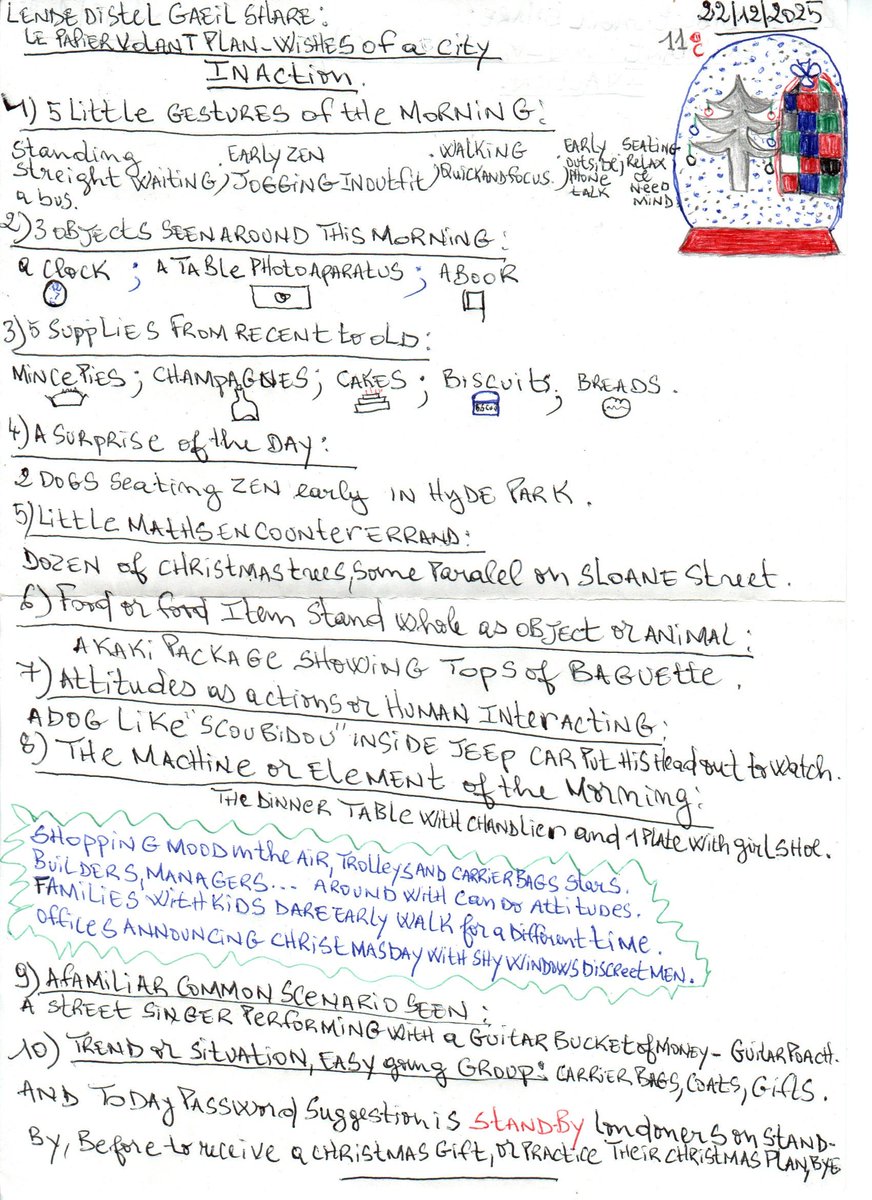 LENDE DISTEL GAEIL SHARE:
22/12/2025
LE PAPIER VOLANT PLAN - WISHES of a city
11°C
IN ACTION.
1) 5 LITTLE GESTURES of the MORNING:
Standing streight WAITING a bus. ; EARLY ZEN JOGGING IN OUTFIT ; WALKING QUICK AND FOCUS. ; EARLY OUTSIDE PHONE TALK ; SEATING RELAX & NEED MIND
2) 3 OBJECTS SEEN AROUND THIS MORNING:
a CLOCK ; A TABLE PHOTO APARATUS ; A BOOR
3) 5 SUPPLIES FROM RECENT to OLD:
MINCE PIES ; CHAMPAGNES ; CAKES ; BISCUITS ; BREADS .
4) A SURPRISE of the DAY:
2 DOGS Seating ZEN early IN HYDE PARK .
5) LITTLE MATHS ENCOUNTER ERRAND:
DOZEN of CHRISTMAS trees, Some Paralel on SLOANE Street .
6) Food or food Item Stand whole as OBJECT or ANIMAL:
A KAKI PACKAGE SHOWING TOPS of BAGUETTE .
7) Attitudes as actions or HUMAN INTERACTING:
A DOG LIKE "SCOUBIDOU" INSIDE JEEP CAR Put His Head out to watch.
8) THE MACHINE or ELEMENT of the Morning:
THE DINNER TABLE WITH CHANDLIER and 1 PLATE with girl SHOE.
SHOPPING MOOD in the AIR, TROLLEYS AND CARRIER BAGS STARS.
BUILDERS, MANAGERS... AROUND WITH CAN DO ATTITUDES.
FAMILIES WITH KIDS DARE EARLY WALK for a Different time .
OFFICES ANNOUNCING CHRISTMAS DAY WITH SHY WINDOWS DISCREET MEN.
9) A FAMILIAR COMMON SCENARIO SEEN:
A STREET SINGER PERFORMING WITH a GUITAR BUCKET of MONEY - GUITAR POACH.
10) TREND or SITUATION, EASY going GROUP: CARRIER BAGS, COATS, GIFTS .
AND TODAY PASSWORD Suggestion is STAND-BY Londoners on STAND-
BY, Before to receive a CHRISTMAS GIFT, or PRACTICE THEIR CHRISTMAS PLAN, BYE